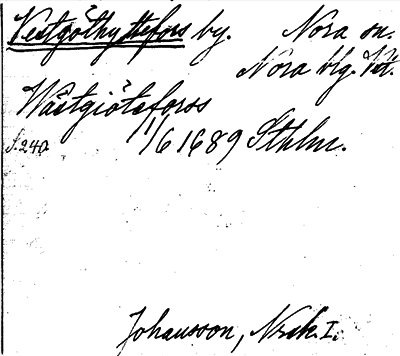 Vestgöthyttefors by. Nora sn.
Nora blg. Vstm.
Wästgiöteforss
S. 240. 1/6 1689 Sthlm.
Johansson, Nrsk. I.